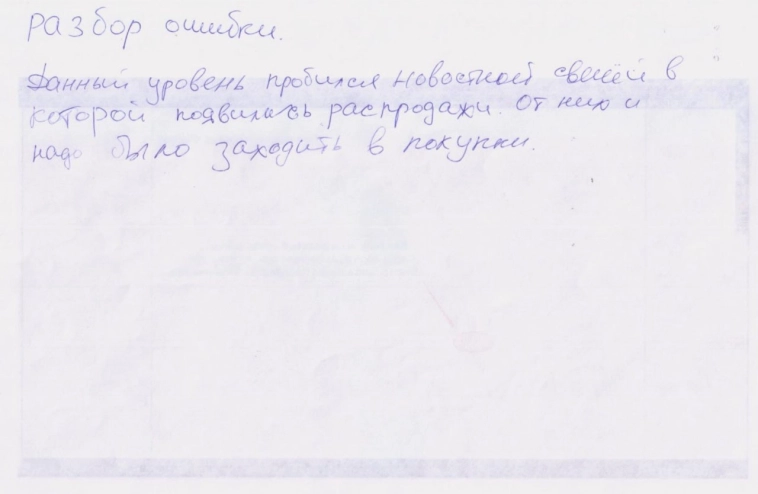 Разбор ошибки.
Данный уровень пробился новостной свечей в
которой появились распродажи. От них и
надо было заходить в покупки.